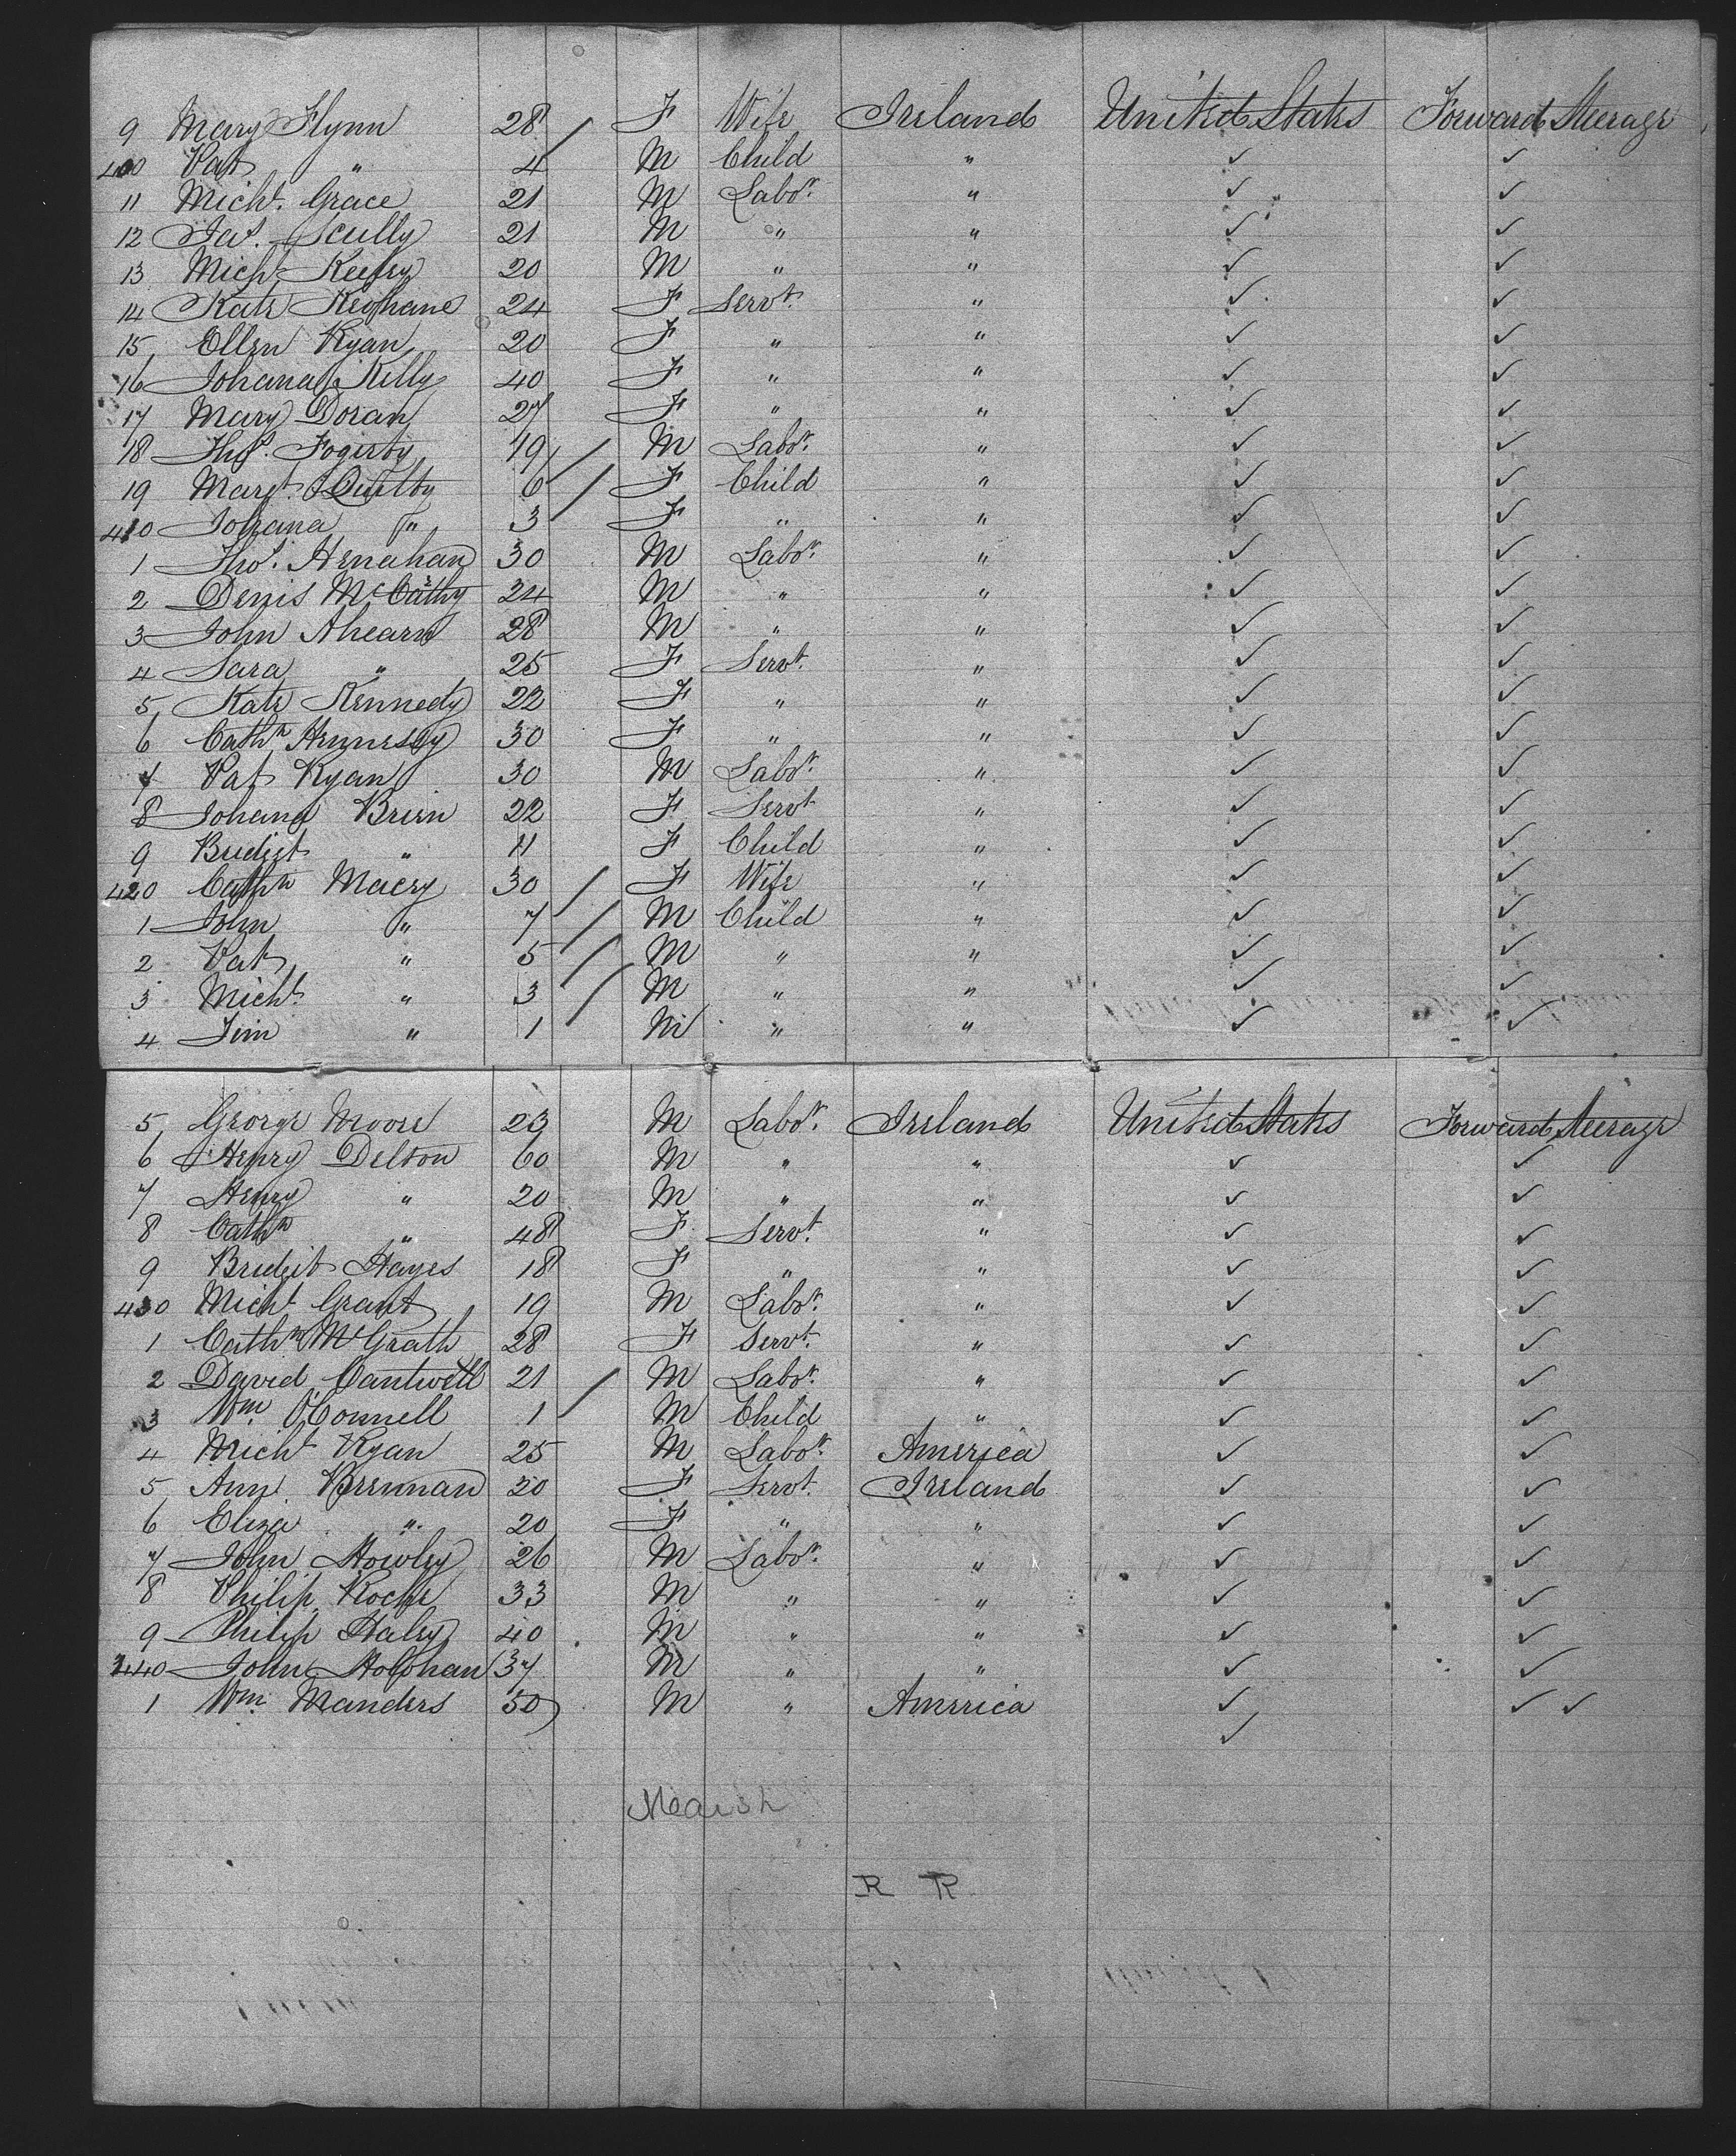 9 Mary Flynn 28 F Wife Ireland United States Forward Steerage
400 Pat " 4 M Child " ✓ ✓
11 Michl. Grace 21 M Labor. " ✓ ✓
12 Jas. Scully 21 M " " ✓ ✓
13 Michl. Keefey 20 M " " ✓ ✓
14 Kate Keohane 24 F Servt. " ✓ ✓
15 Ellen Ryan 20 F " " ✓ ✓
16 Johana Kelly 40 F " " ✓ ✓
17 Mary Doran 27 F " " ✓ ✓
18 Thos. Fogerty 19 M Labor. " ✓ ✓
19 Margt. Quilty 6 F Child " ✓ ✓
410 Johana " 3 F " " ✓ ✓
1 Thos. Henahan 30 M Labor. " ✓ ✓
2 Denis McCarthy 24 M " " ✓ ✓
3 John Ahearn 28 M " " ✓ ✓
4 Sara " 25 F Servt. " ✓ ✓
5 Kate Kennedy 22 F " " ✓ ✓
6 Cathn Hennessy 30 F " " ✓ ✓
7 Pat Ryan 30 M Labor. " ✓ ✓
8 Johana Brien 22 F Servt " ✓ ✓
9 Bridget " 11 F Child " ✓ ✓
420 Cathn Macey 30 F Wife " ✓ ✓
1 John " 7 M Child " ✓ ✓
2 Pat " 5 M " " ✓ ✓
3 Michl. " 3 M " " ✓ ✓
4 Jim " 1 M " " ✓ ✓
5 George Moore 23 M Labor. Ireland United States Forward Steerage
6 Henry Delton 60 M " " ✓ ✓
7 Henry " 20 M " " ✓ ✓
8 Cathn " 48 F Servt. " ✓ ✓
9 Bridgit Hayes 18 F " " ✓ ✓
430 Michl Grant 19 M Labor. " ✓ ✓
1 Cathn McGrath 28 F Servt. " ✓ ✓
2 David Cantwell 21 M Labor. " ✓ ✓
3 Wm O'Connell 1 M Child " ✓ ✓
4 Michl Ryan 25 M Labor. America ✓ ✓
5 Ann Brennan 20 F Servt. Ireland ✓ ✓
6 Eliza " 20 F " " ✓ ✓
7 John Howley 26 M Labor. " ✓ ✓
8 Philip Roche 33 M " " ✓ ✓
9 Philip Haley 40 M " " ✓ ✓
440 John Holohan 37 M " " ✓ ✓
1 Wm. Manders 50 M " America ✓ ✓ ✓
✓
R R